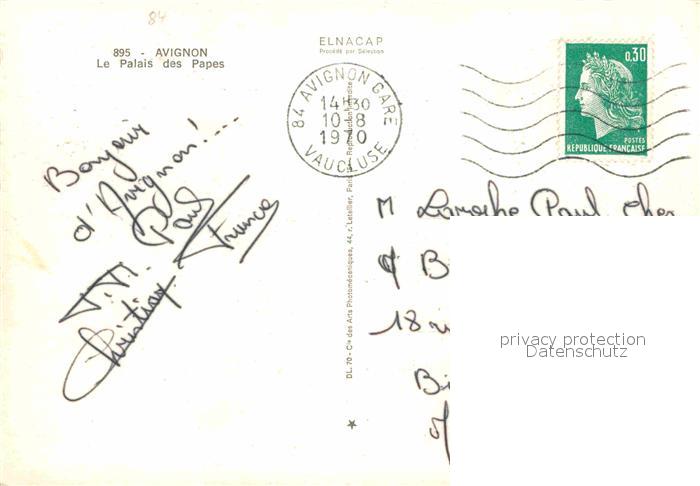 84
895 - AVIGNON
Le Palais des Papes
ELNACAP
Procédé par Sélection
84 AVIGNON GARE
14H30
10-8
1970
VAUCLUSE
0,30
POSTES
REPUBLIQUE FRANÇAISE
Bonjour
d'Avignon!....
Paul
France
Christian
DL. 70 - Cie des Arts Photomécaniques, 44, r. Letellier, Paris - Reproduction interdite
M Laroche Paul chez
18
privacy protection
Datenschutz